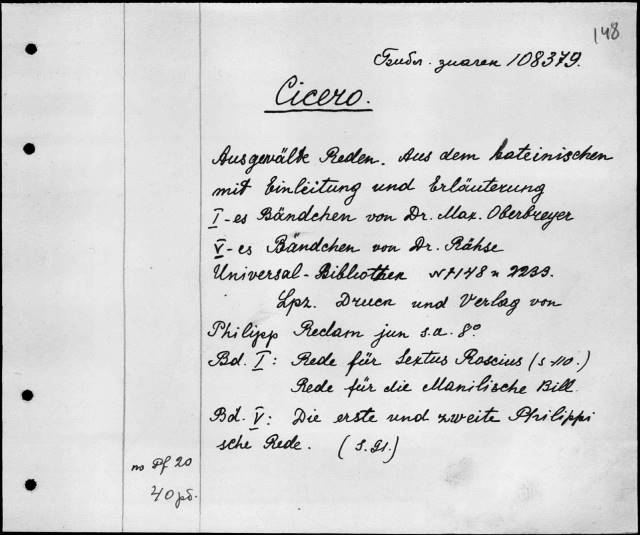 148
Библ. знаrек 108379.
Cicero.
Ausgewälte Reden. Aus dem Lateinischen
mit Einleitung und Erläuterung
I-es Bändchen von Dr. Max. Oberbreyer
V-es Bändchen von Dr. Rähse
Universal-Bibliothek № 1148 и 2233.
Lpz. Druck und Verlag von
Philipp Reclam jun s.a. 8°
Bd. I: Rede für Sextus Roscius (s-110.)
Rede für die Manilische Bill
Bd. V: Die erste und zweite Philippi
sche Rede. (S. 91.)
по Pf 20
40 рб.